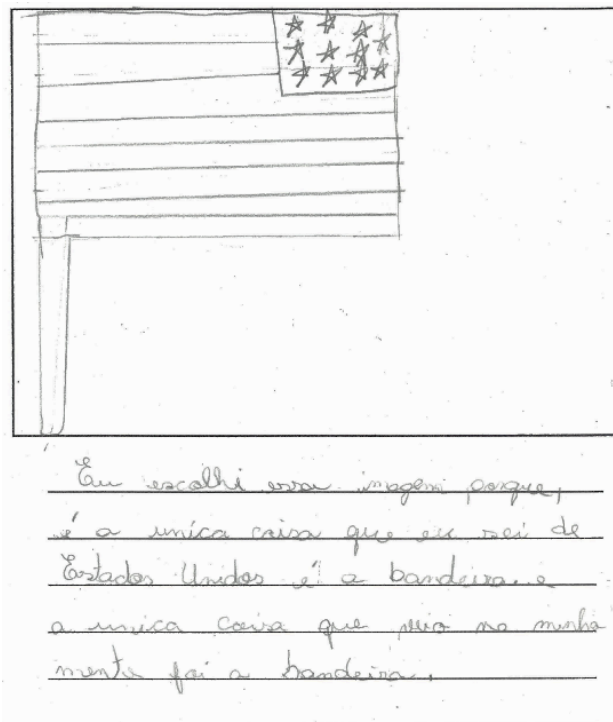 Eu escolhi essa imagem porque,
é a unica coisa que eu sei de
Estados Unidos é a bandeira e
a unica coisa que veio na minha
mente foi a bandeira.